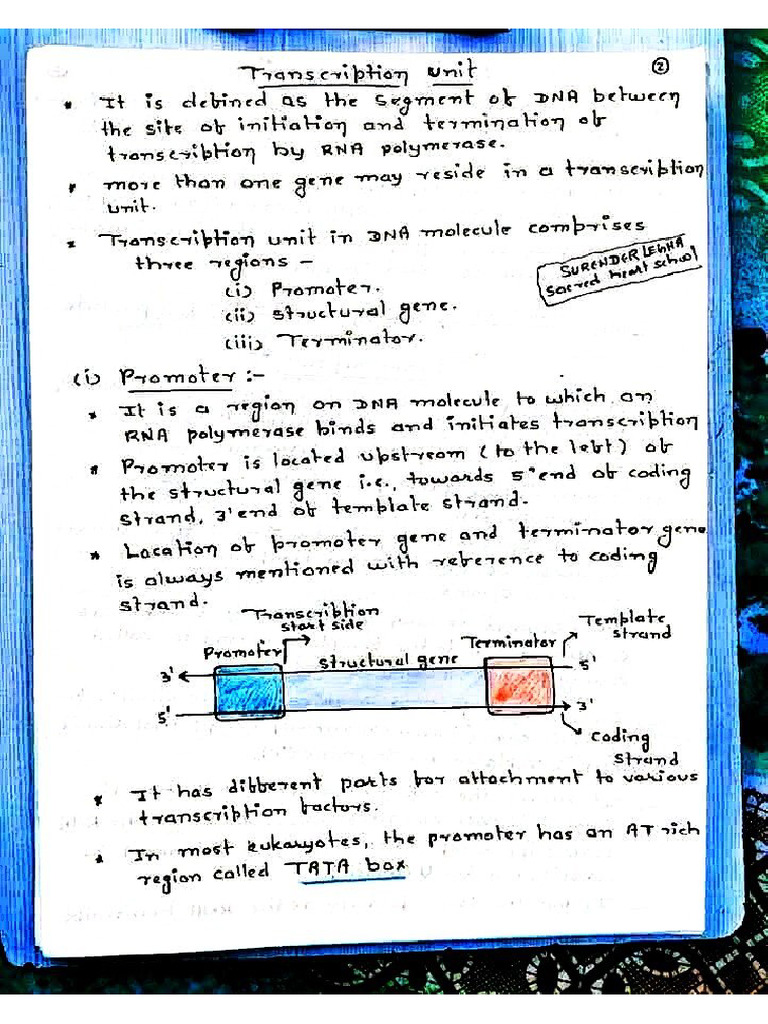 Transcription unit
②
* It is defined as the segment of DNA between
the site of initiation and termination of
transcription by RNA polymerase.
* more than one gene may reside in a transcription
unit.
* Transcription unit in DNA molecule comprises
three regions -
SURENDER LEGHA
Sacred Heart School
(i) Promoter.
(ii) structural gene.
(iii) Terminator.
(i) Promoter :-
* It is a region on DNA molecule to which an
RNA polymerase binds and initiates transcription
* Promoter is located upstream (to the left) of
the structural gene i.e., towards 5' end of coding
strand, 3' end of template strand.
* Location of promoter gene and terminator gene
is always mentioned with reference to coding
strand.
Transcription
start side
Template
strand
Promoter
structural gene
Terminator
3'
5'
5'
3'
coding
strand
* It has different parts for attachment to various
transcription factors.
* In most eukaryotes, the promoter has an AT rich
region called TATA box